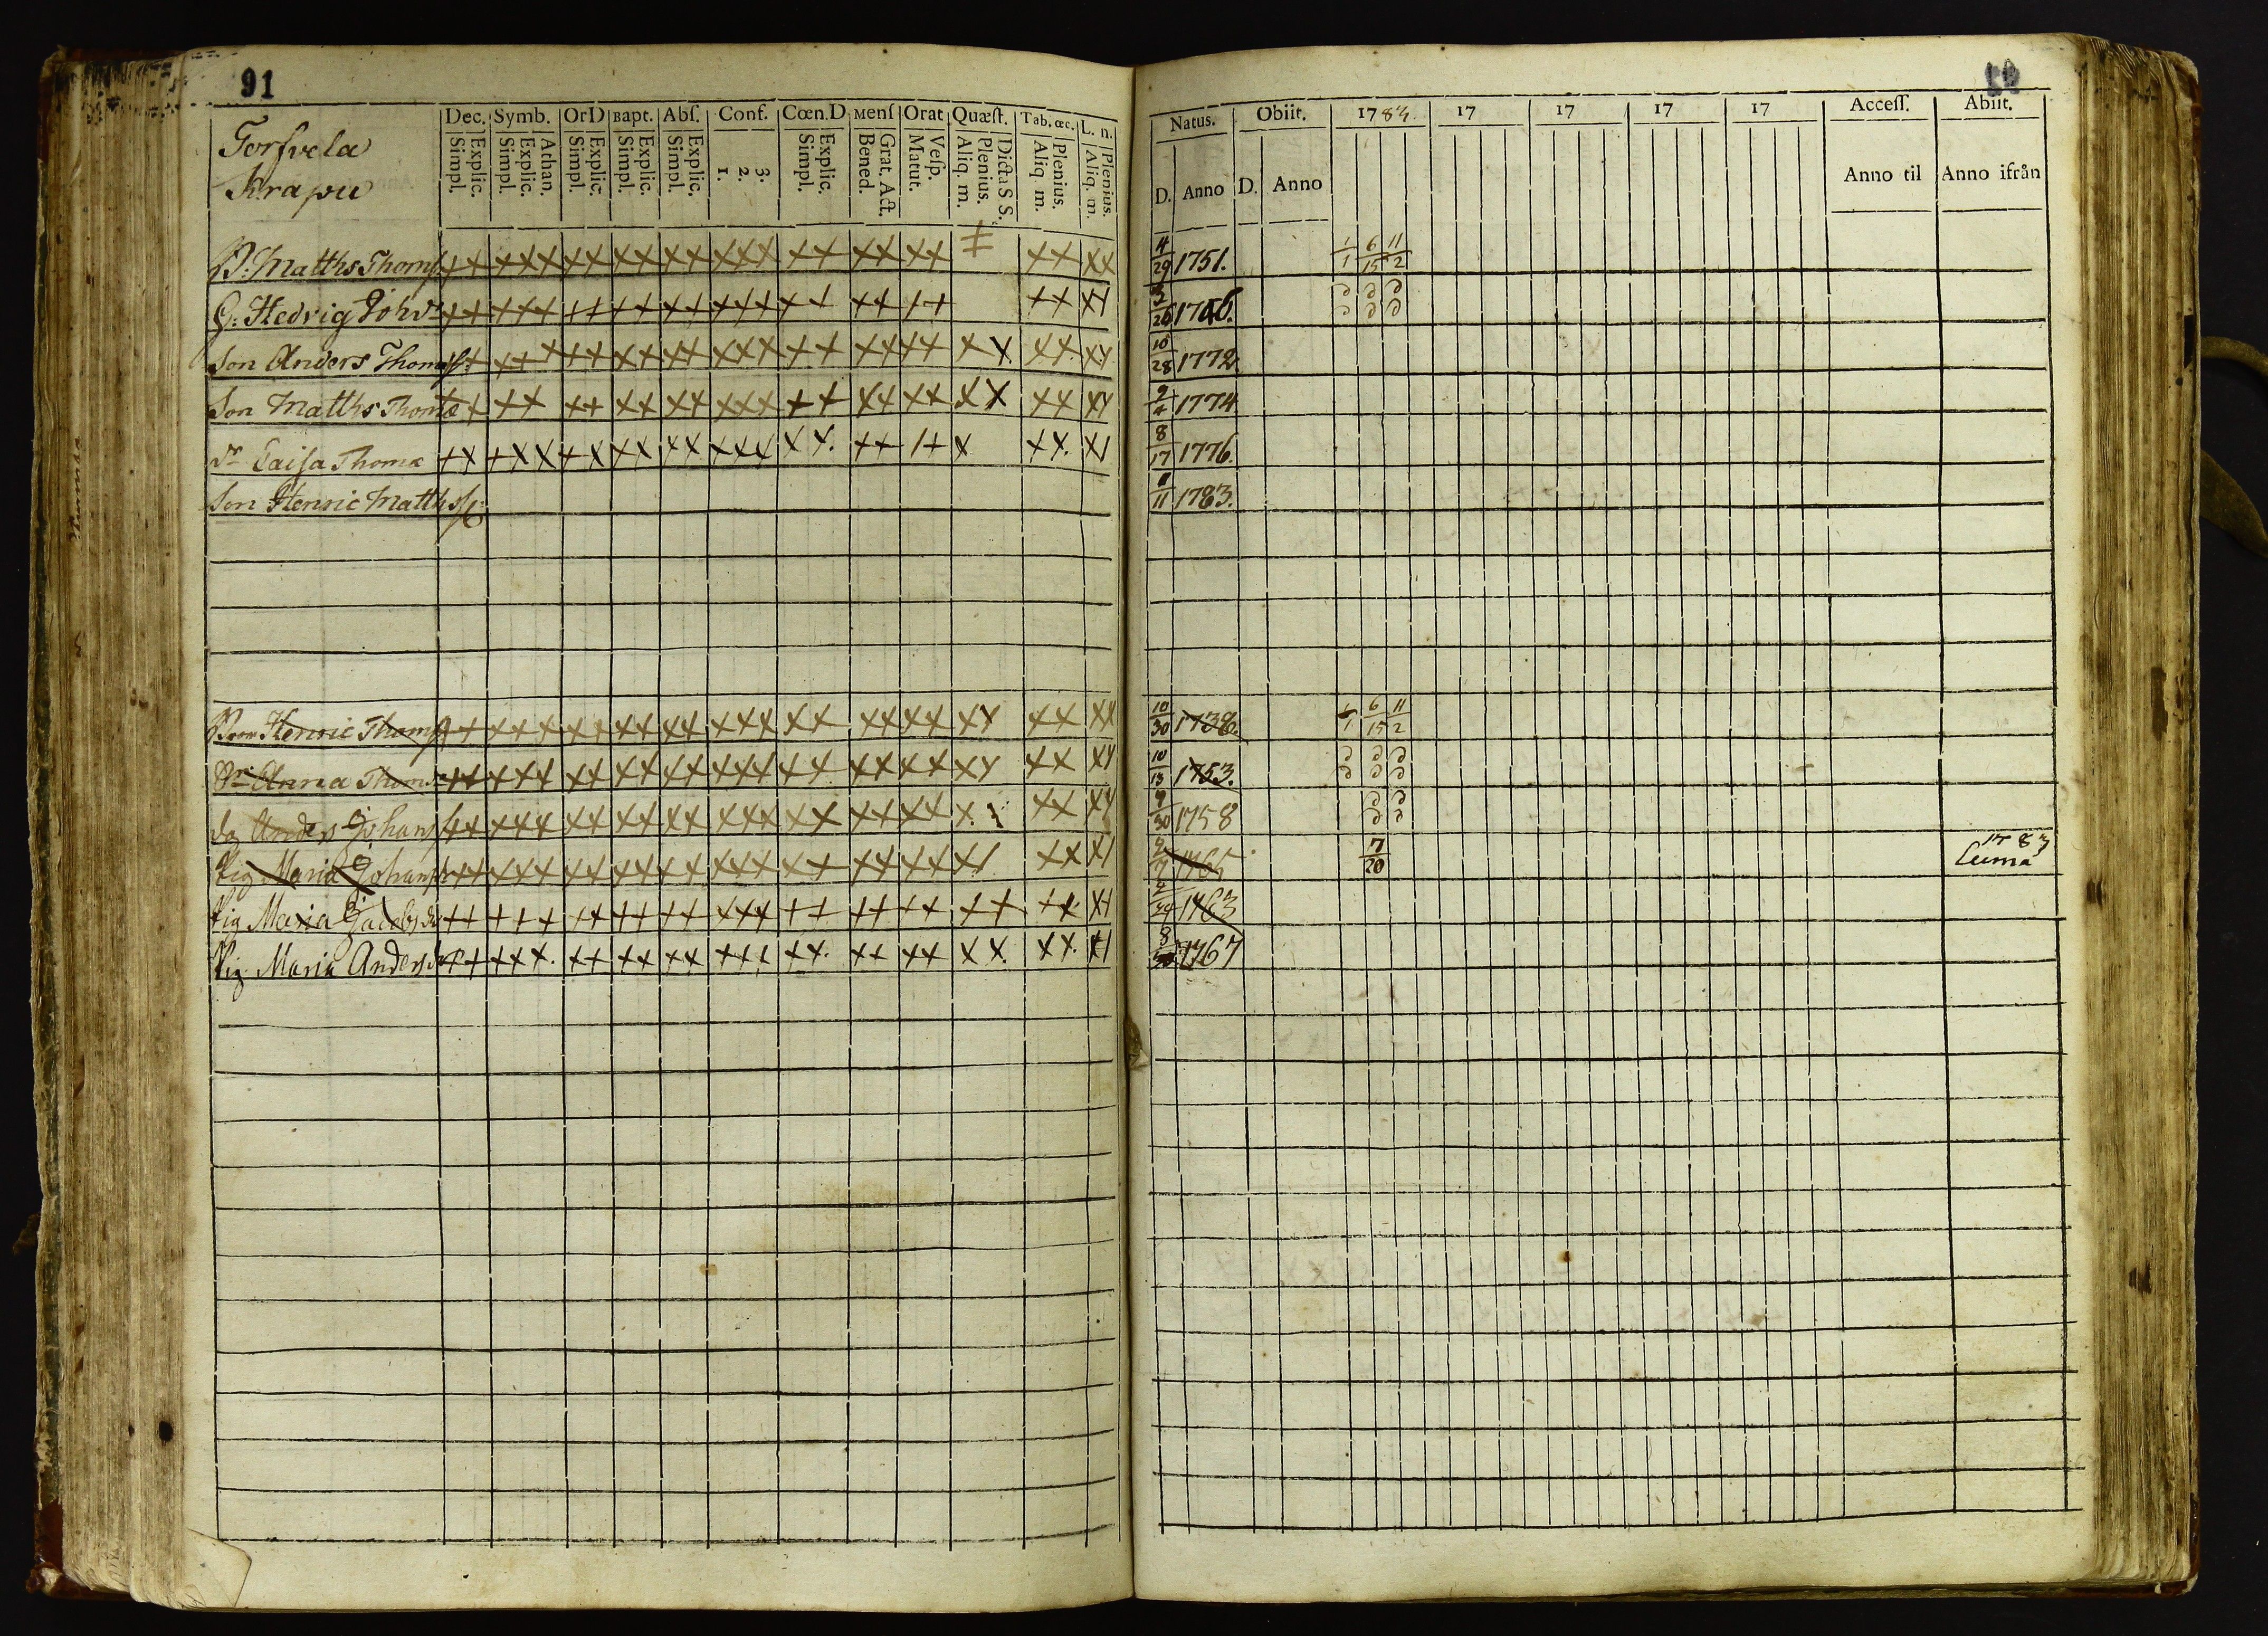 91
Torsvela
Krapu
Dec. Symb. OrD Bapt. Abſ. Conf. Cœn.D Menſ Orat Quæſt. Tab.œc. L. n.
Explic. Simpl. Athan. Explic. Simpl. Explic. Simpl. Explic. Simpl. Explic. Simpl. 3. 2. 1. Explic. Simpl. Grat. Act. Bened. Veſp. Matut. Dicta S S. Plenius. Aliq. m. Plenius. Aliq. m. Plenius. Aliq. m.
Natus. Obiit. 1783. 17 17 17 17 Acceſſ. Abiit.
D. Anno D. Anno Anno til Anno ifrån
B: Matths Thomſ 4/29 1751. 1/1 6/15 11/2
H: Hedrig Joh dr
Son Anders Thomæſ: 10/28 1772.
Son Matths Thomæ 9/4 1774
Dr Caiſa Thomæ 8/17 1776.
Son Henric Matthsſ: 11 1783.
Henric Thomſ 10/30 1738. 6/15 11/2
Anna Thom 10/13 1753.
Anders Johanſ 9/30 1758
Pig Maria Johans 1765 7/20 1783
Pig Maria Jacobs dr 1763
Pig Maria Anders dr 8 1767